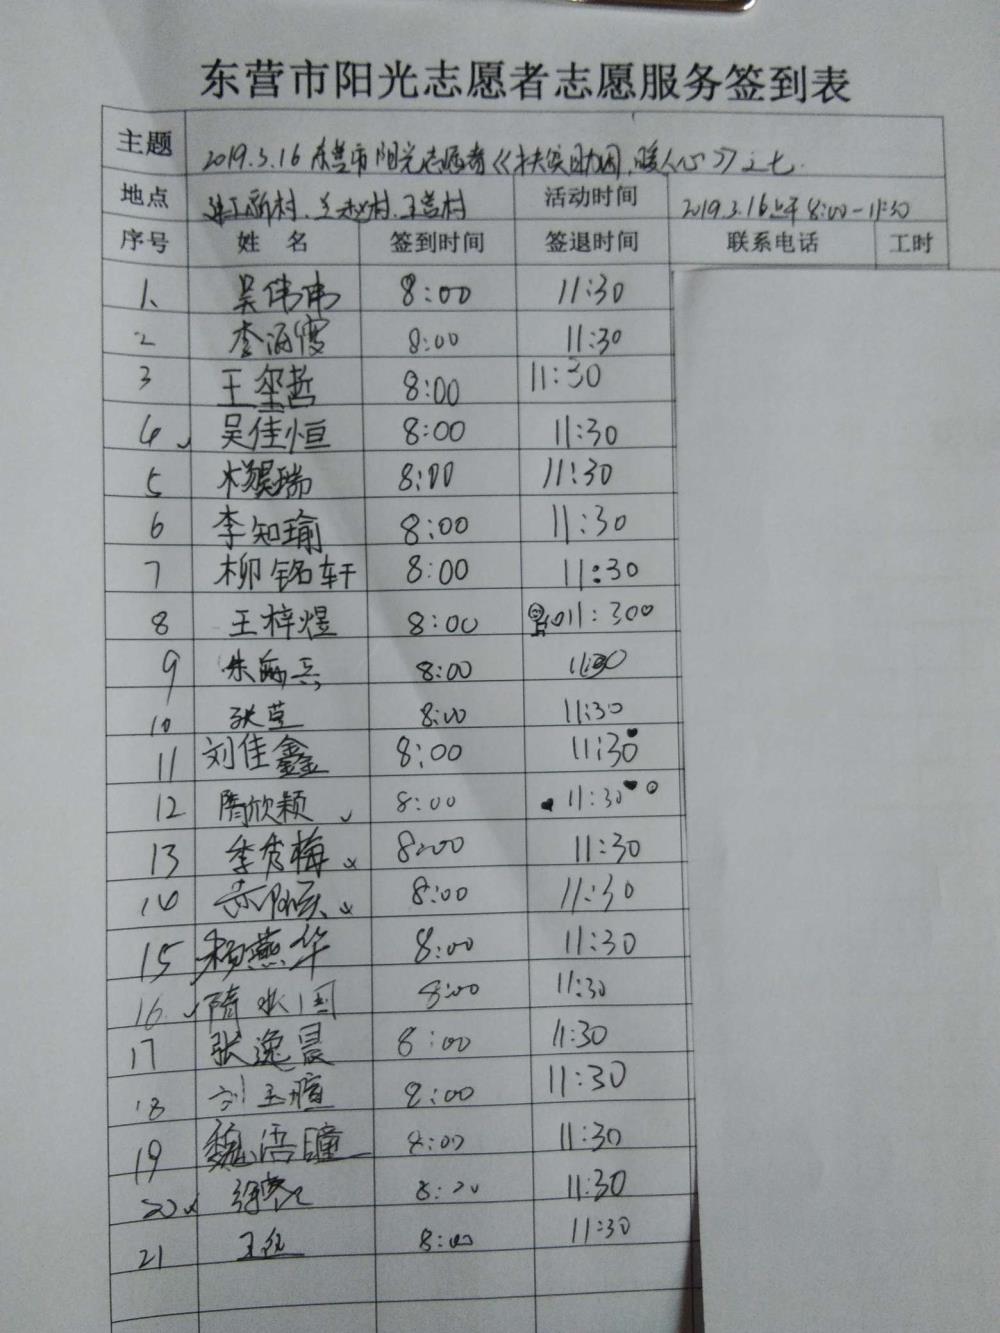 东营市阳光志愿者志愿服务签到表
主题 2019.3.16 东营市阳光志愿者《扶贫助困,暖人心》之七
地点 新村、王营村 活动时间 2019.3.16上午8:00-11:30
序号 姓 名 签到时间 签退时间 联系电话 工时
1、 吴伟伟 8:00 11:30
2 李涵 8:00 11:30
3 王玺哲 8:00 11:30
4 吴佳恒 8:00 11:30
5 瑞 8:00 11:30
6 李知瑜 8:00 11:30
7 柳铭轩 8:00 11:30
8 王梓煜 8:00 11:30
9 朱兵 8:00 11:30
10 张 8:00 11:30
11 刘佳鑫 8:00 11:30
12 隋欣颖 8:00 11:30
13 李秀梅 8:00 11:30
14 8:00 11:30
15 杨燕华 8:00 11:30
16 隋国 8:00 11:30
17 张逸晨 8:00 11:30
18 刘玉暄 8:00 11:30
19 魏语瞳 8:00 11:30
20 徐 8:20 11:30
21 王 8:00 11:30